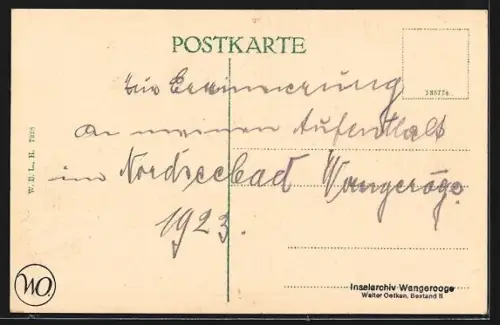 POSTKARTE
185774
Zur Erinnerung
an meinen Aufenthalt
im Nordseebad Wangeroge.
1923.
W. B. L., H. 7228
WO.
Inselarchiv Wangerooge
Walter Oetken, Bestand II